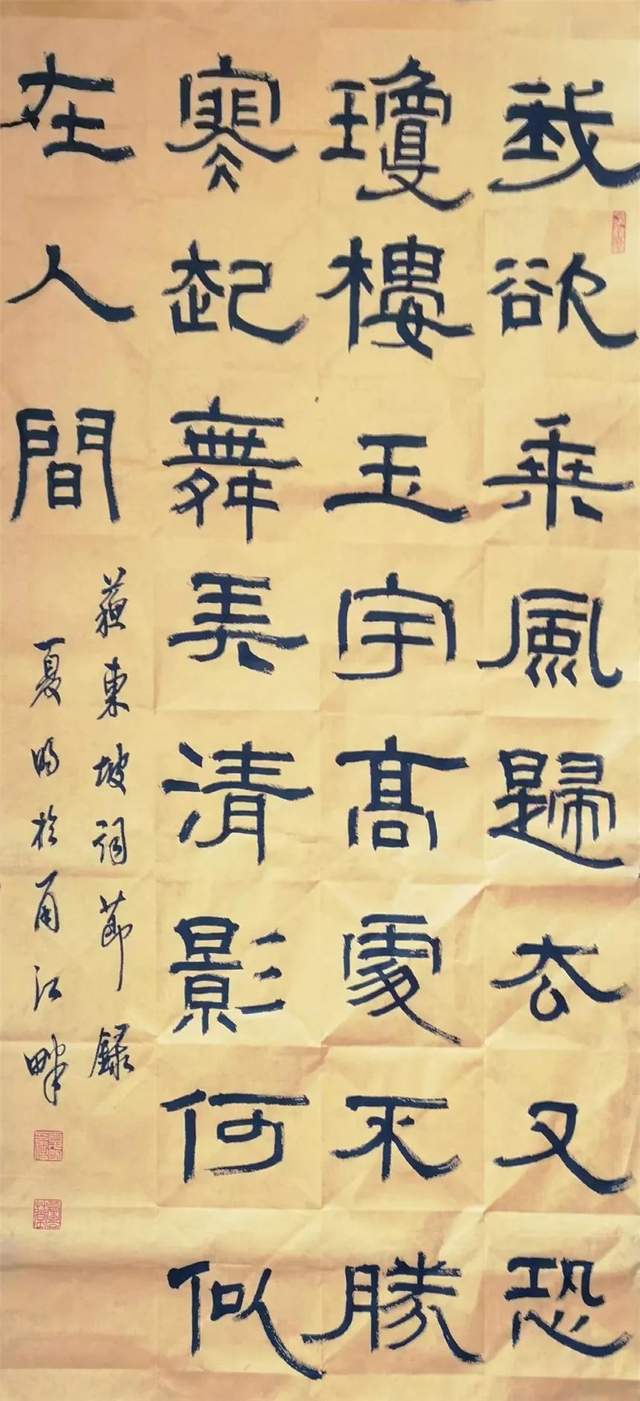 我欲乘風歸去又恐
瓊樓玉宇高處不勝
寒起舞弄清影何似
在人間
蘇東坡詞節錄
夏明於甬江畔